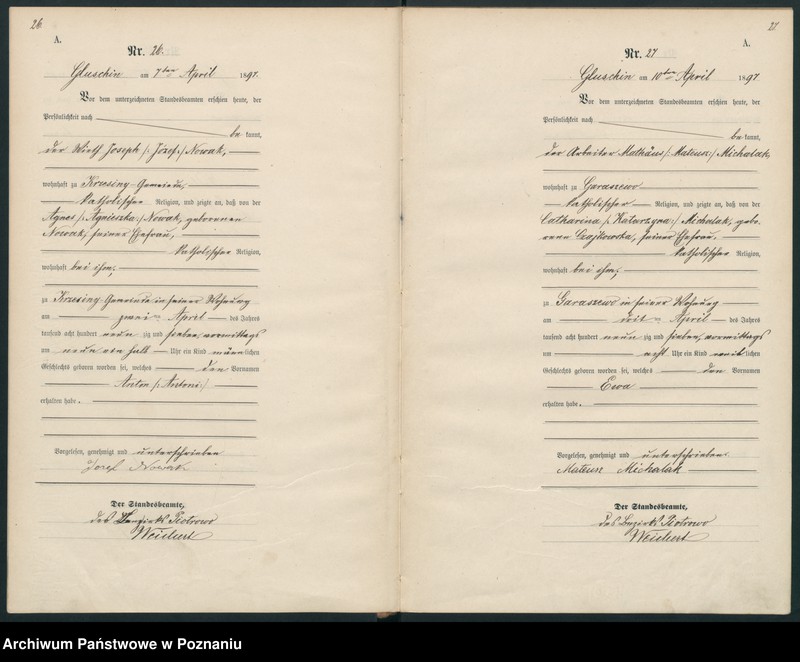 26.
A.
Nr. 26.
Gluschin am 7ten April 1897.
Vor dem unterzeichneten Standesbeamten erschien heute, der
Persönlichkeit nach
be kannt,
der Wirth Joseph /: Józef :/ Nowak,
wohnhaft zu Krzesiny-Gemeinde,
katholischer Religion, und zeigte an, daß von der
Agnes /: Agnieszka :/ Nowak, geborenen
Nowak, seiner Ehefrau,
katholischer Religion,
wohnhaft bei ihm,
zu Krzesiny-Gemeinde in seiner Wohnung
am zwei ten April des Jahres
tausend acht hundert neun zig und sieben, vormittags
um neun ein halb Uhr ein Kind männ lichen
Geschlechts geboren worden sei, welches den Vornamen
Anton /: Antoni :/
erhalten habe.
Vorgelesen, genehmigt und unterschrieben
Józef Nowak
Der Standesbeamte,
des Bezirks Piotrowo
Weichert
27.
A.
Nr. 27
Gluschin am 10ten April 1897
Vor dem unterzeichneten Standesbeamten erschien heute, der
Persönlichkeit nach
be kannt,
der Arbeiter Mathäus /: Mateusz :/ Michalak,
wohnhaft zu Garaszewo
katholischer Religion, und zeigte an, daß von der
Catharina /: Katarzyna :/ Michalak, gebo-
renen Czajkowska, seiner Ehefrau,
katholischer Religion,
wohnhaft bei ihm,
zu Garaszewo in seiner Wohnung
am drit ten April des Jahres
tausend acht hundert neun zig und sieben, vormittags
um acht Uhr ein Kind weib lichen
Geschlechts geboren worden sei, welches den Vornamen
Ewa
erhalten habe.
Vorgelesen, genehmigt und unterschrieben
Mateusz Michalak
Der Standesbeamte,
des Bezirks Piotrowo
Weichert
Archiwum Państwowe w Poznaniu